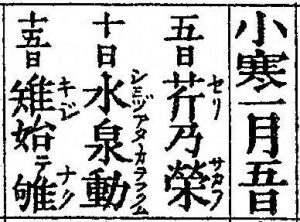 小寒一月五日
五日芹乃榮
セリ サカフ
十日水泉動
シミヅアタカヲフクム
十五日雉始テ雊
キジ ナク